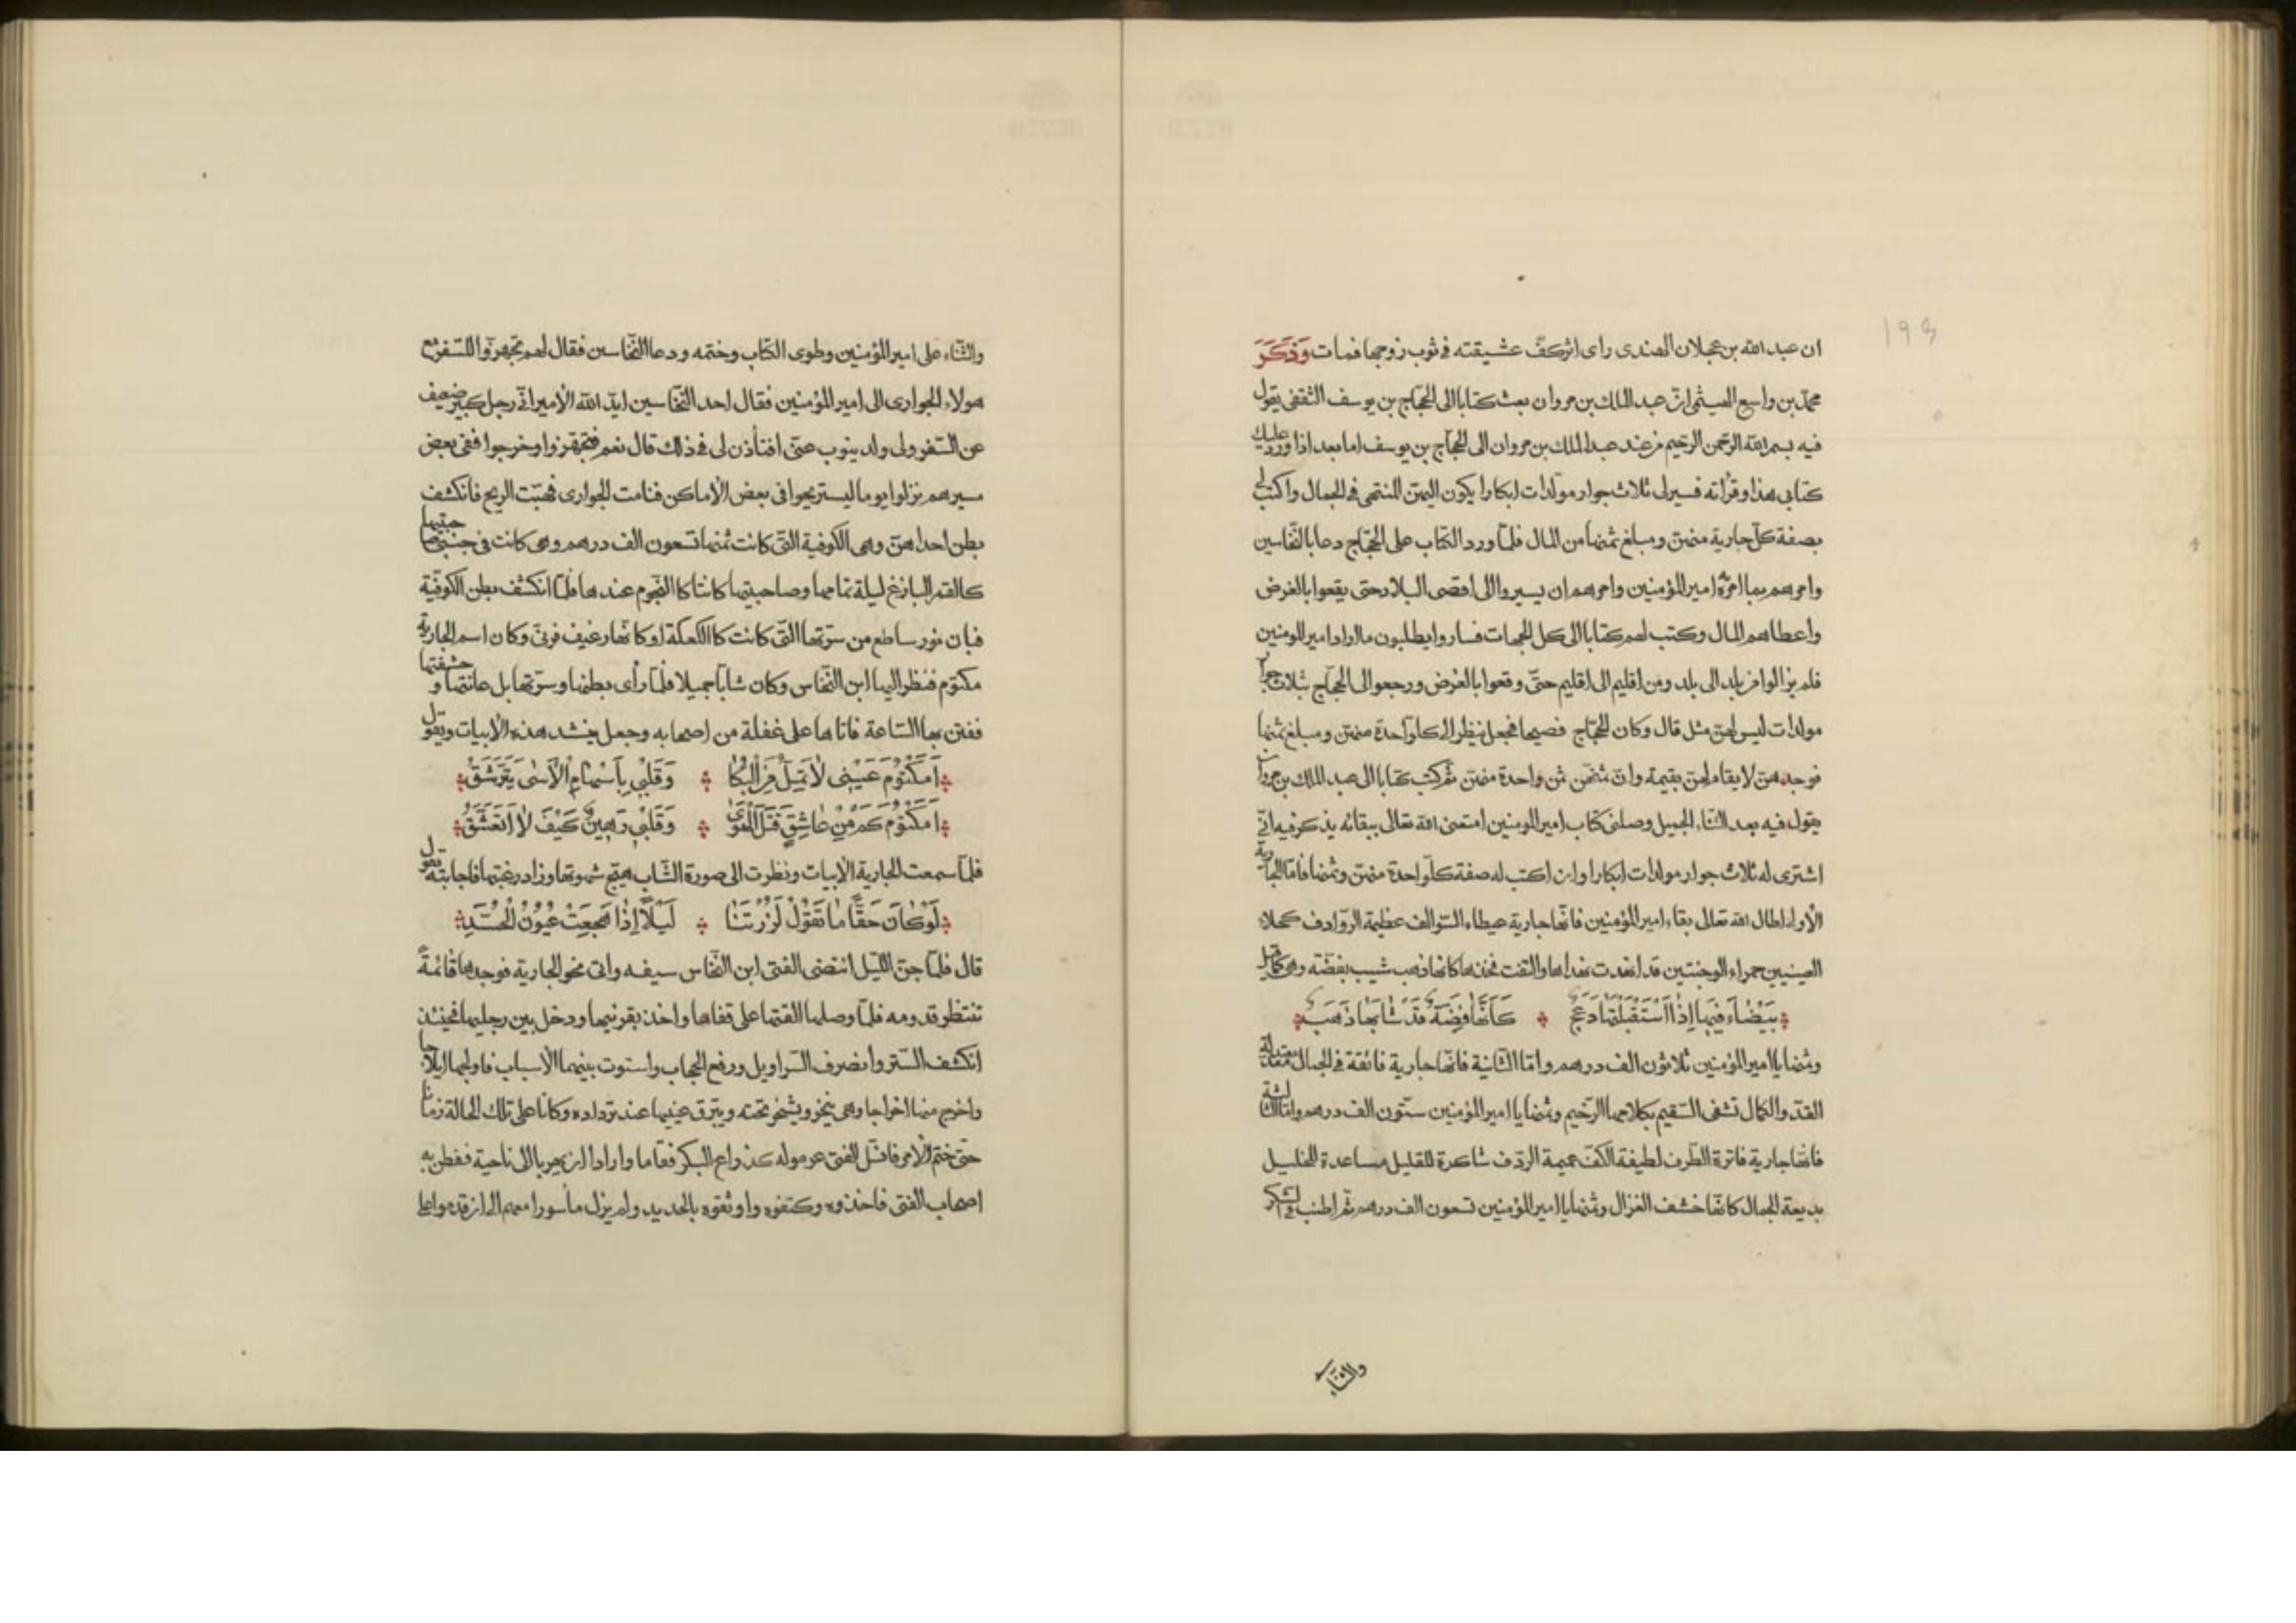 193
ان عبد الله بن عجلان الهندى راى اثر كفّ عشيقته فى ثوب زوجها فمات وَذَكَرَ
محمّد بن واسع الهيثمى انّ عبد الملك بن مروان بعث كتابا الى الحجّاج بن يوسف الثقفى يقول
فيه بسم الله الرحمن الرحيم من عند عبد الملك بن مروان الى الحجّاج بن يوسف اما بعد اذا ورد عليك
كتابى هذا وقرأته فسير لى ثلاث جوار مولّدات ابكارا يكون اليهنّ المنتهى فى الجمال واكتب لى
بصفة كلّ جارية منهنّ ومبلغ ثمنها من المال فلمّا ورد الكتاب على الحجّاج دعا بالنخّاسين
وامرهم بما امرَهُ امير المؤمنين وامرهم ان يسيروا الى اقصى البلاد حتى يقعوا بالغرض
واعطاهم المال وكتب لهم كتابا الى كل الجهات فساروا يطلبون ما اراد امير المومنين
فلم يزالوا من بلد الى بلد ومن اقليم الى اقليم حتّى وقعوا بالغرض ورجعوا الى الحجّاج بثلاث جوار
مولدات ليس لهنّ مثل قال وكان الحجّاج فصيحا فجعل ينظر الى كلّ واحدة منهنّ ومبلغ ثمنها
فوجدهنّ لا يقام لهنّ بقيمة وانّ ثمنهنّ ثمن واحدة منهنّ ثم كتب كتابا الى عبد الملك بن مروان
يقول فيه بعد الثناء الجميل وصلنى كتاب امير المومنين امتعنى الله تعالى ببقائه يذكر فيه انّى
اشترى له ثلاث جوار مولدات ابكارا وان اكتب له صفة كلّ واحدة منهنّ وثمنها فامّا الجارية
الاولى اطال الله تعالى بقاء امير المؤمنين فانّها جارية عيطاء السّوالف عظيمة الرّوادف كحلاء
العينين حمراء الوجنتين قد انهدت نهداها والتفت فخذاها كانّها ذهب شيب بفضّة وهى كما قيل
بَيْضَاءُ فِيهَا اِذَا اسْتَقْبَلْتَهَا دَعَجٌ كَأَنَّهَا فِضَّةٌ قَدْ شَابَهَا ذَهَبُ
وثمنها يا امير المؤمنين ثلاثون الف درهم وامّا الثّانية فانّها جارية فائقة فى الجمال معتدلة
القدّ والكمال تشفى السّقيم بكلامها الرّخيم وثمنها يا امير المؤمنين ستّون الف درهم وامّا الثالثة
فانّها جارية فاترة الطّرف لطيفة الكفّ عميمة الردف شاكرة للقليل مساعدة للخليل
بديعة الجمال كانّها خشف الغزال وثمنها يا امير المؤمنين تسعون الف درهم ثمّ اطنب فى الشكر
والثناء
والثّناء على امير المؤمنين وطوى الكتاب وختمه ودعا النّخّاسين فقال لهم تجهّزوا للسّفر مع
هولاء الجوارى الى امير المؤمنين فقال احد النّخّاسين ايّد الله الامير انّى رجل كبير ضعيف
عن السّفر ولى ولد ينوب عنّى افتأذن لى فى ذلك قال نعم فتجهّزوا وخرجوا ففى بعض
مسيرهم نزلوا يوما ليستريحوا فى بعض الاماكن فنامت الجوارى فهبّت الريح فانكشف
بطن احداهنّ وهى الكوفية التى كانت ثمنها تسعون الف درهم وهى كانت فى جنب صاحبتيها
كالقمر البازغ ليلة تمامها وصاحبتيها كانتا كالنّجوم عندها فلمّا انكشف بطن الكوفيّة
فبان نور ساطع من سرّتها التّى كانت كالكعكة او كانّها رغيف فرنىّ وكان اسم الجارية
مكتوم فنظر اليها ابن النّخّاس وكان شابّا جميلا فلمّا رأى بطنها وسرّتها بل عانتها و حشفتها
ففتن بها السّاعة فاتاها على غفلة من اصحابه وجعل ينشد هذه الابيات ويقول
اَمَكْتُوْمَ عَيْنِى لَا تَمَلُّ مِنَ الْبُكَا وَقَلْبِى بِاَسْهَامِ الْاَسٰى يَتَرَشَّقُ
اَمَكْتُوْمَ كَمْ مِنْ عَاشِقٍ قَتَلَ الْهَوٰى وَقَلْبِى رَهِيْنٌ كَيْفَ لَا اَتَعَشَّقُ
فلمّا سمعت الجارية الابيات ونظرت الى صورة الشّاب هيّج شهوتها وزاد رغبتها فاجابته تقول
لَوْ كَانَ حَقًّا مَا تَقُوْلُ لَزُرْتَنَا لَيْلًا اِذَا هَجَعَتْ عُيُوْنُ الْحُسَّدِ
قال فلمّا جنّ اللّيل انتضى الفتى ابن النّخّاس سيفه واتى نحو الجارية فوجدها قائمةً
تنتظر قدومه فلمّا وصلها القتها على قفاها واخذ بقرنيها ودخل بين رجليها فحينئذ
انكشف السّتر وانصرف السّراويل ورفع الحجاب واستوت بينهما الاسباب فاولجها ايلاجا
واخرج منها اخراجا وهى ينخر ويشخر تحته ويبرق عينيها عند ترداده وكانا على تلك الحالة زمانا
حتى ختم الامر فانسل الفتى عرموله كذراع البكر فقاما وارادا ان يهربا الى ناحية ففطن به
اصحاب الفتى فاخذوه وكتفوه واوثقوه بالحديد ولم يزل مأسورا معهم الى ان قدموا على